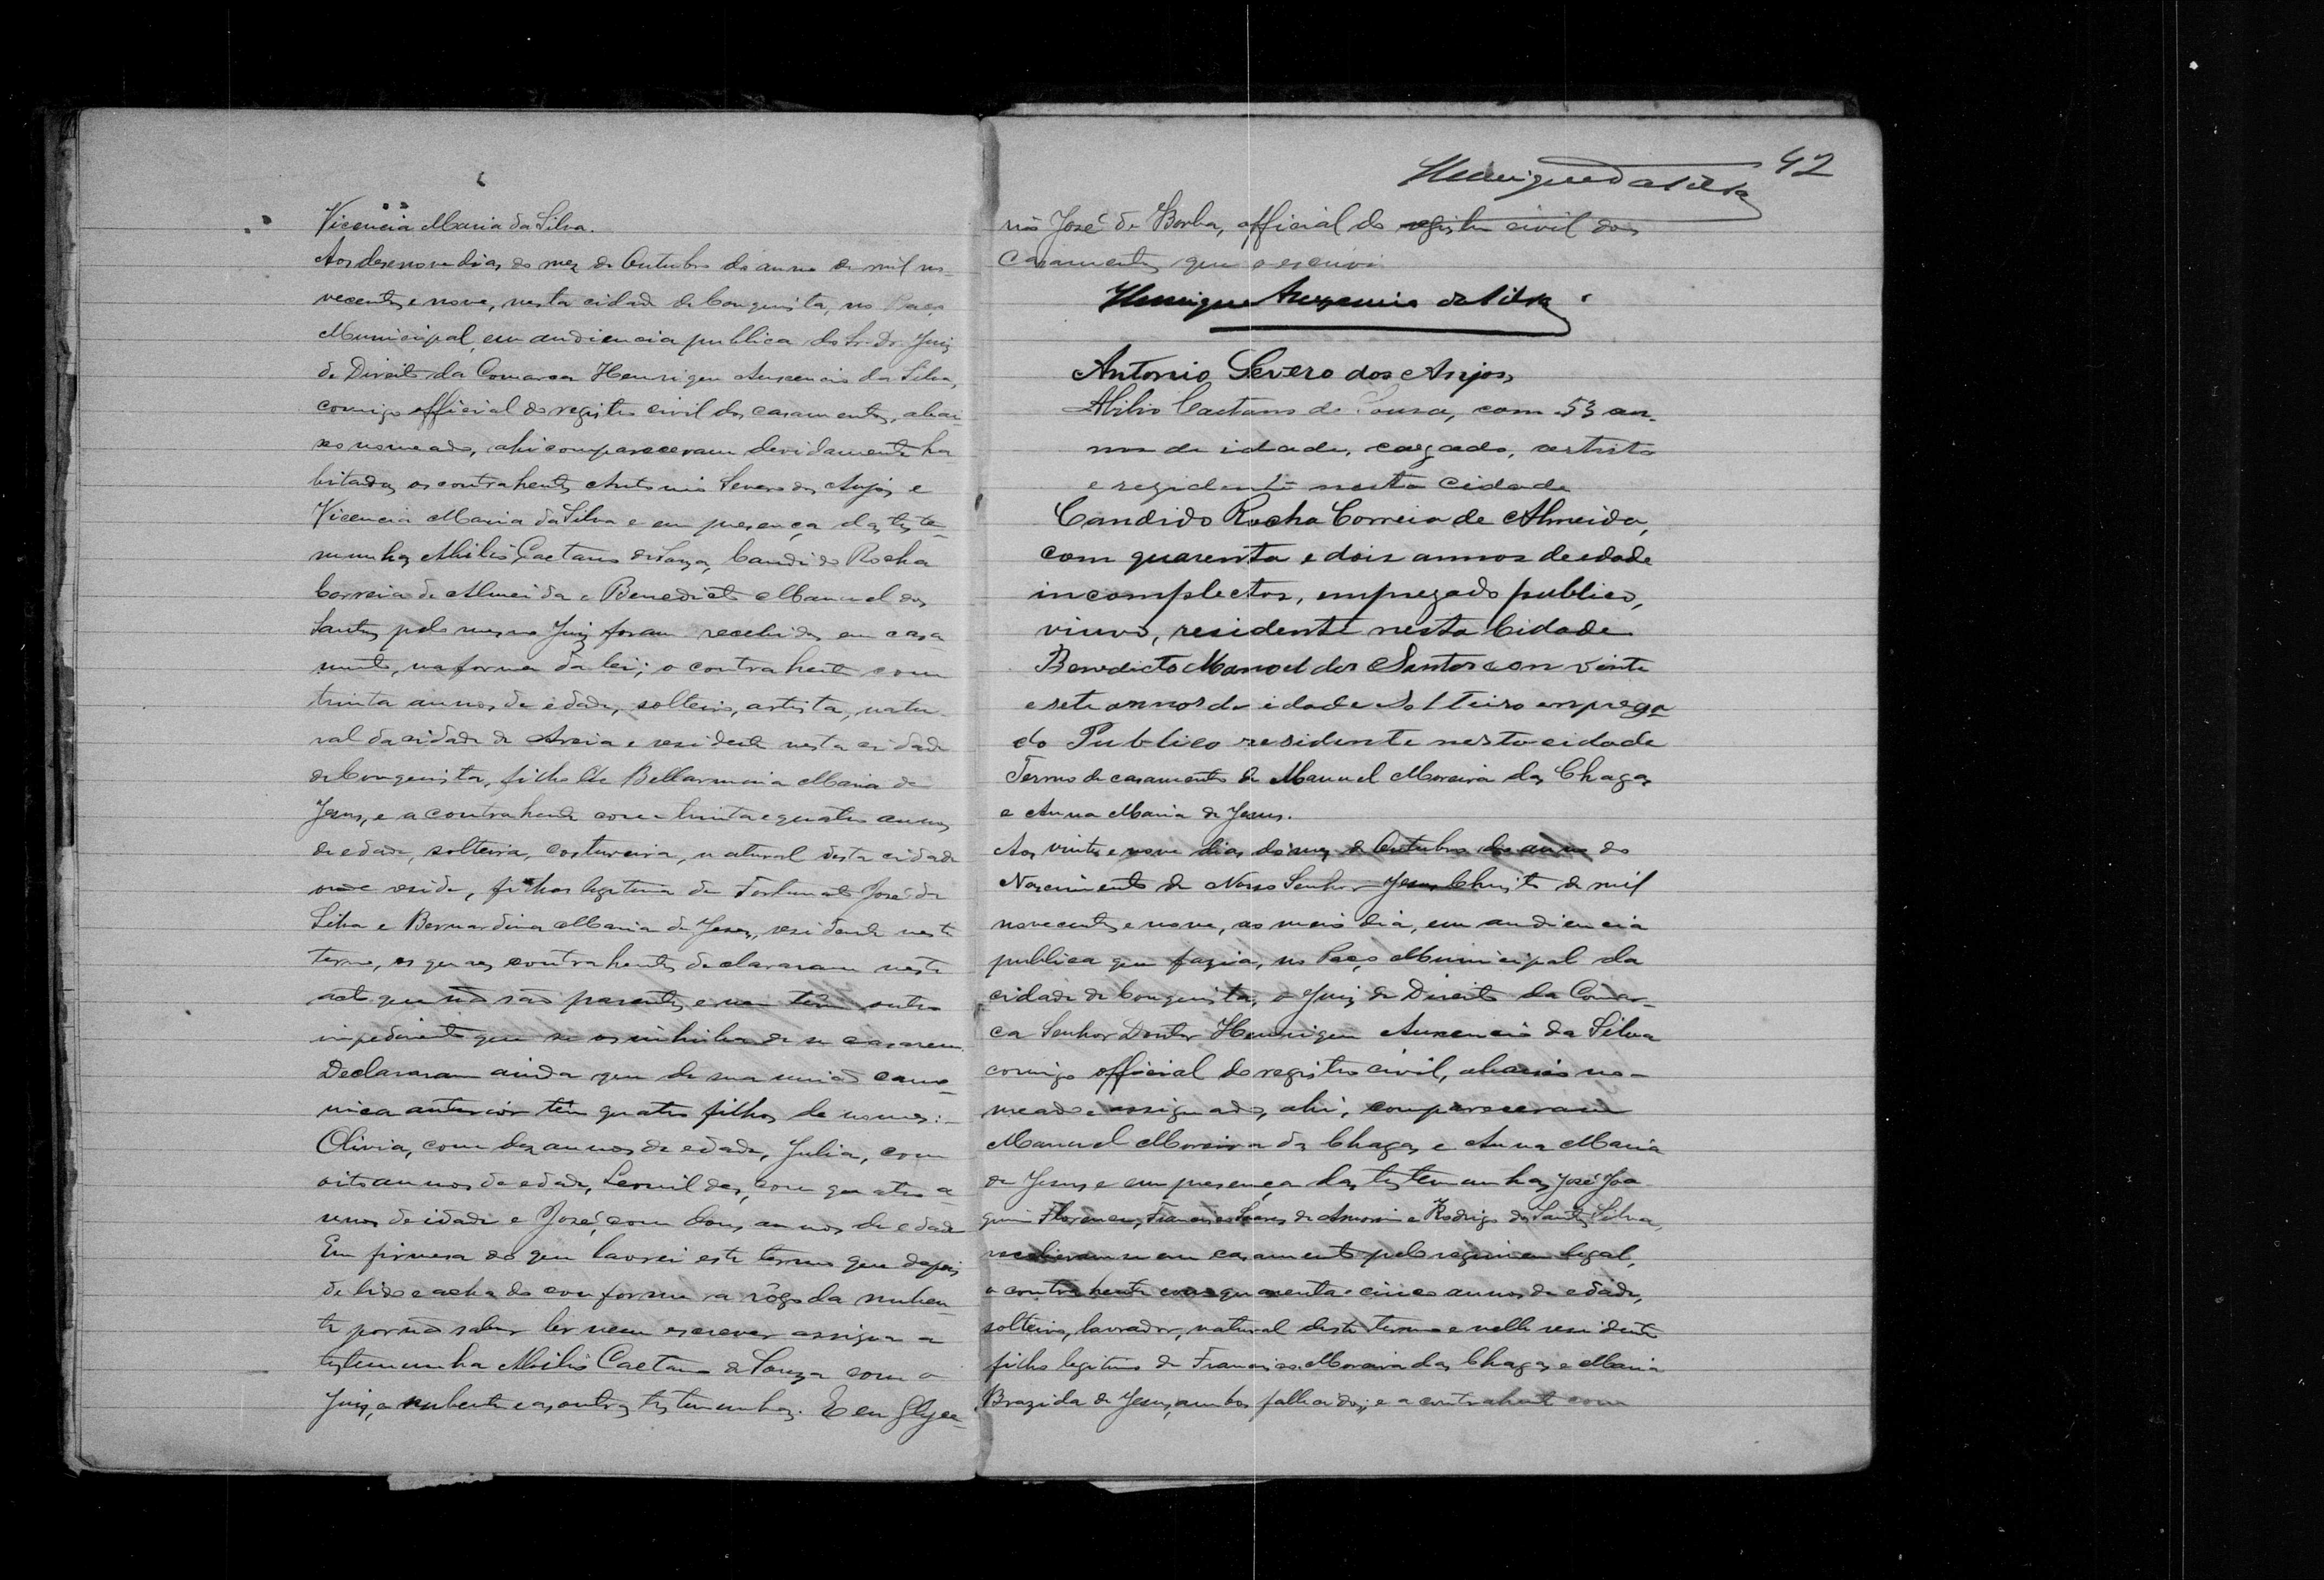 Vicencia Maria da Silva.
Aos desenove dias do mez de Outubro do anno de mil no-
vecentos e nove, nesta cidade de Conquista, no Paço
Municipal, em audiencia publica do Sr. Dr. Juiz
de Direito da Comarca Henrique Auxencio da Silva,
comigo official do registro civil dos casamentos, abai-
xo nomeado, ahi compareceram devidamente ha
bitados os contrahentes Antonio Severo dos Anjos e
Vicencia Maria da Silva e em presença das teste-
munhas Abilio Caetano de Souza, Candido Rocha
Correia de Almeida e Benedicto Manuel dos
Santos pelo mesmo Juiz foram recebidos em casa
mento, na forma da lei; o contrahente com
trinta annos de edade, solteiro, artista, natu-
ral da cidade de Areia e residente nesta cidade
de Conquista, filho de Bellarmina Maria de
Jesus, e a contrahente com trinta e quatro annos
de edade, solteira, costureira, natural desta cidade
onde reside, filha legitima de Fortunato José da
Silva e Bernardina Maria de Jesus, residente neste
termo, os quaes contrahentes declararam neste
acto que não são parentes e nem têm outro
impedimento que se os inhiba de se casarem.
Declararam ainda que de sua união cano-
nica anterior têm quatro filhos de nomes:-
Olivia, com dez annos de edade, Julia, com
oito annos de edade, Leonildes, com quatro a
nnos de idade e José, com dous annos de edade
Em firmesa do que lavrei este termo que depois
de lido e achado conforme a rôgo da nuben-
te por não saber ler nem escrever assigna a
testemunha Abilio Caetano de Souza com o
Juiz, o nubente e as outras testemunhas. E eu Glyce-
Henrique da Silva 42
rio José de Borba, official do registro civil dos
casamentos que o escrevi
Henrique Auxencio da Silva.
Antonio Severo dos Anjos,
Abilio Caetano de Sousa, com 53 an-
nos de idade, cazado, artista
e rezidente nesta Cidade
Candido Rocha Correia de Almeida,
com quarenta e dois annos de edade
incomplectos, empregado publico,
viuvo, residente nesta Cidade
Benedicto Manoel dos Santos con vinte
e sete annos de idade Solteiro emprega
do Publico residente nesta cidade
Termo de casamento de Manuel Moreira das Chagas
e Anna Maria de Jesus.
Aos vinte e nove dias do mez de Outubro do anno do
Nascimento de Nosso Senhor Jesus Christo de mil
novecentos e nove, ao meio dia, em audiencia
publica que fazia, no Paço Municipal da
cidade de Conquista, o Juiz de Direito da Comar-
ca Senhor Doutor Henrique Auxencio da Silva
comigo official do registro civil, abaixo no-
meado e assignado, ahi, compareceram
Manuel Moreira das Chagas e Anna Maria
de Jesus e em presença das testemunhas José Joa
quim Florences, Francisco Soares de Amorim e Rodrigo dos Santos Silva,
receberam-se em casamento pelo regimen legal,
o contrahente com quarenta e cinco annos de edade,
solteiro, lavrador, natural deste termo e nelle residente
filho legitimo de Francisco Moreira das Chagas e Maria
Brazida de Jesus, ambos fallecidos; e a contrahente com